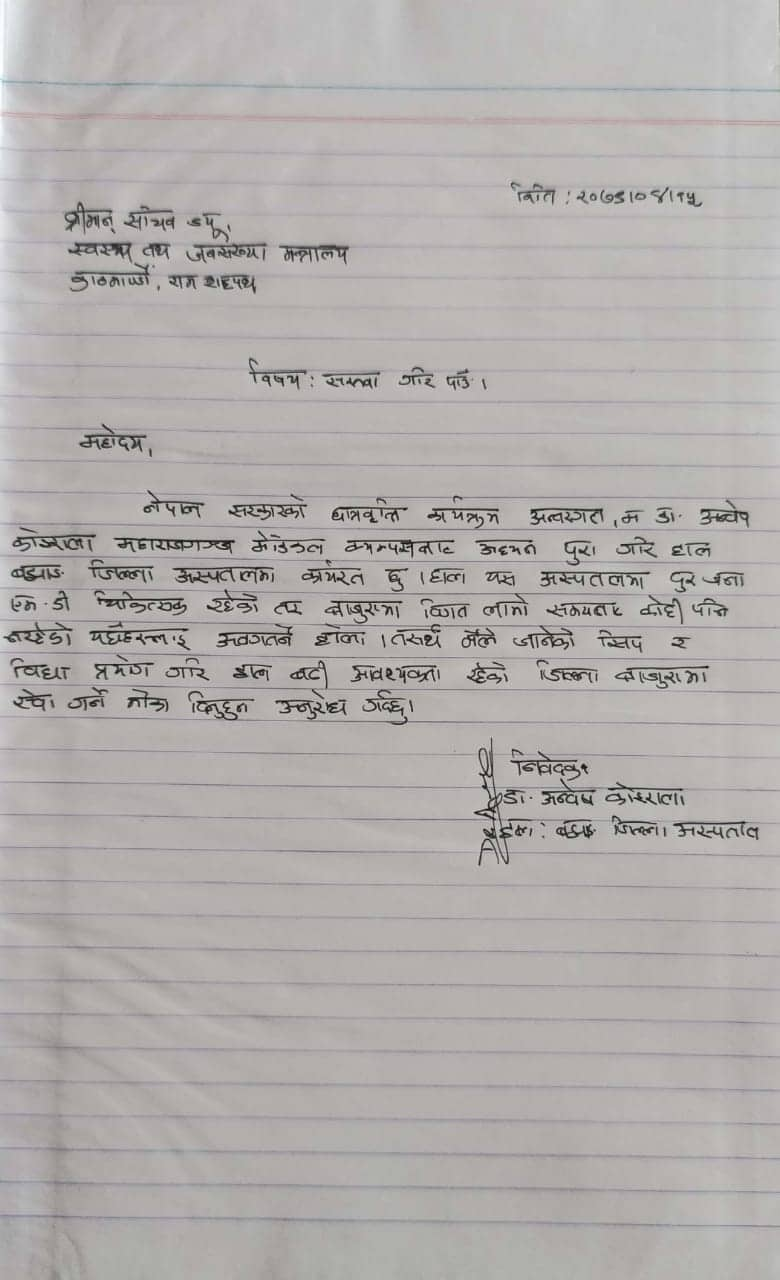 मिति : २०७५।०४।१५
श्रीमान् सचिव ज्यू,
स्वास्थ्य तथा जनसंख्या मन्त्रालय
काठमाण्डौं, राम शाहपथ
विषय : सरुवा गरि पाउँ ।
महोदय,
नेपाल सरकारको छात्रवृत्ति कार्यक्रम अन्तरगत, म डा. अन्वेष
कोइराला महाराजगञ्ज मेडिकल क्याम्पसबाट अध्ययन पुरा गरि हाल
बझाङ जिल्ला अस्पतालमा कार्यरत छु । हाल यस अस्पतालमा दुइ जना
एम.डी चिकित्सक रहेको तर बाजुरामा विगत लामो समयबाट कोही पनि
नरहेको यहाँहरुलाइ अवगतनै होला । तसर्थ मैले जानेको सिप र
विधा प्रयोग गरि हाल बढी आवश्यकता रहेको जिल्ला बाजुरामा
सेवा गर्ने मौका दिनुहुन अनुरोध गर्दछु।
निवेदक
डा. अन्वेष कोइराला
बझाङ जिल्ला अस्पताल